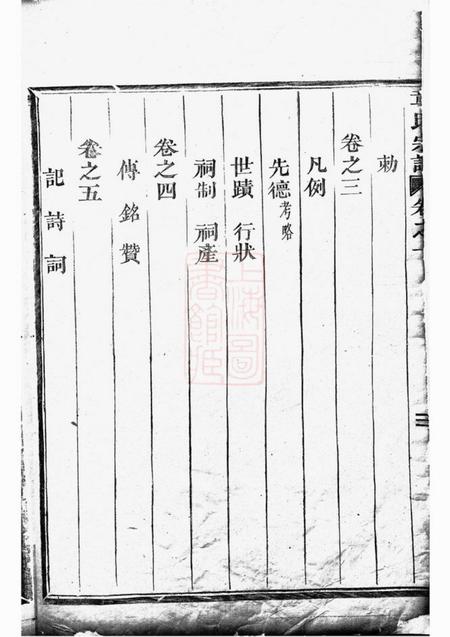 勅
卷之三
凡例
先德考略
世蹟 行狀
祠制 祠產
卷之四
傳銘贊
卷之五
記詩詞
上海圖書館藏